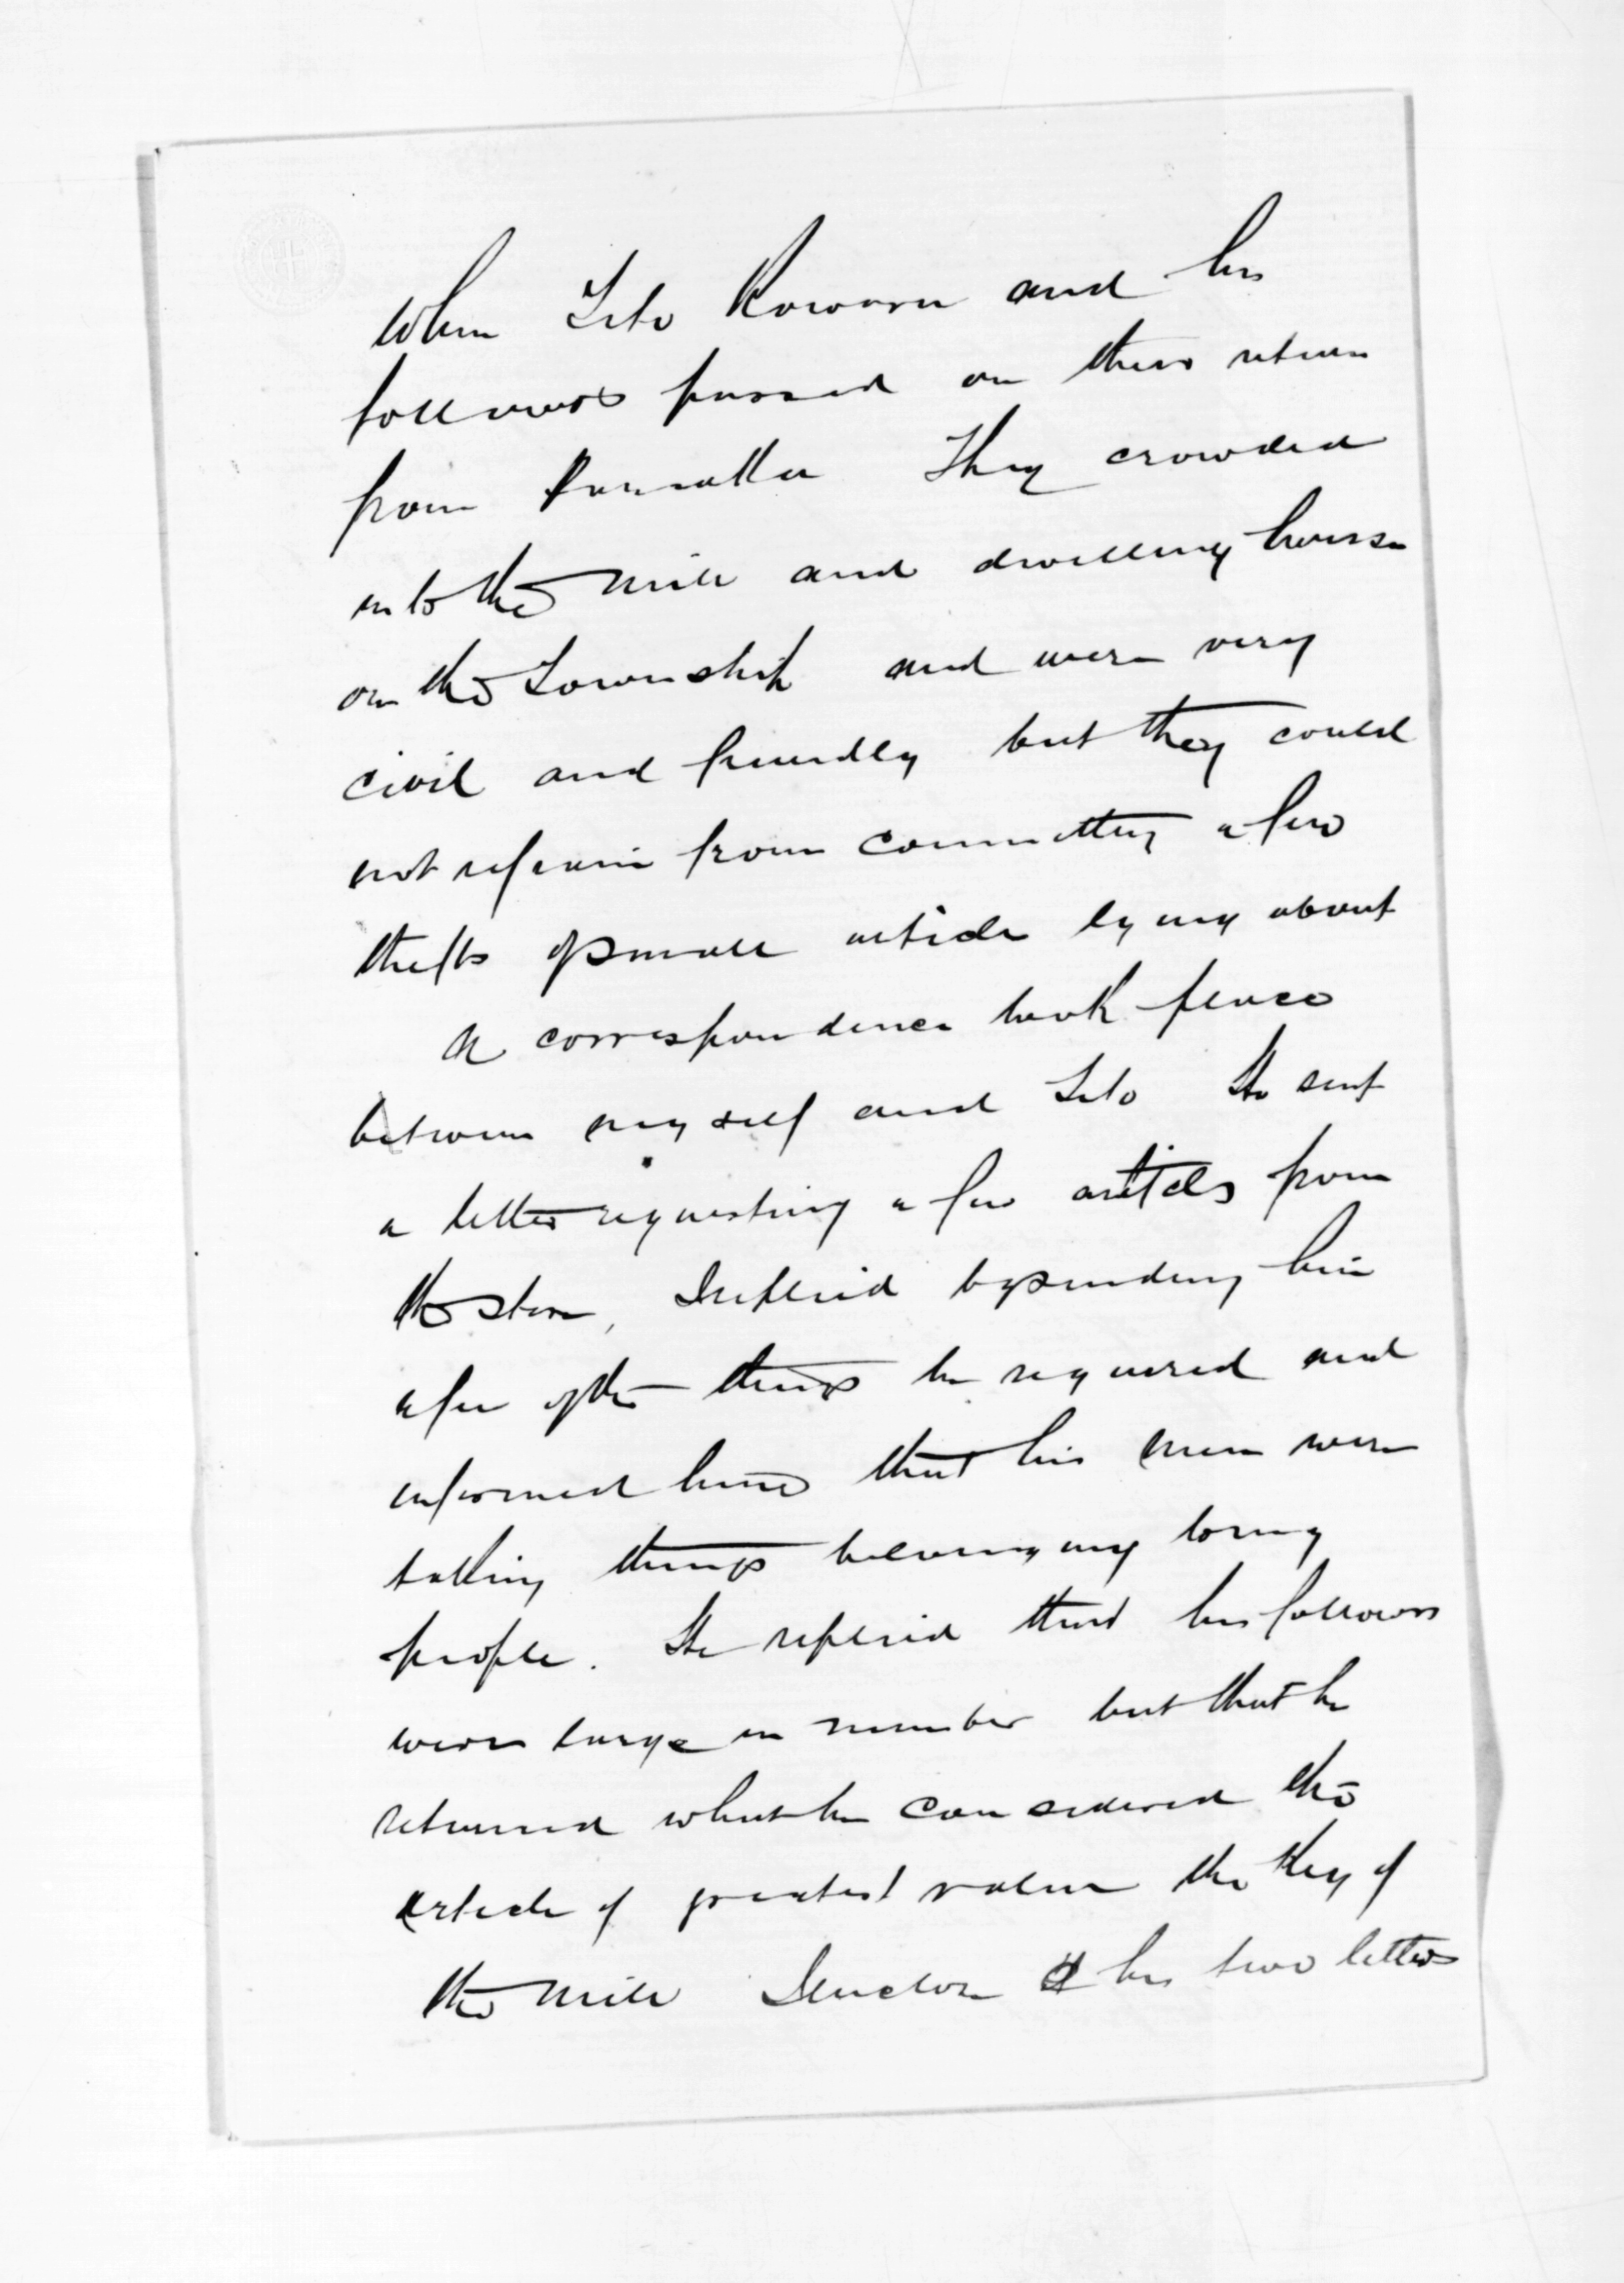 When Tito Kowaru and his
followers passed on their return
from Parnatta They crowded
into the mill and dwelling house
on the Township and were very
civil and friendly but they could
not refrain from committing a few
thefts of small article lying about
A correspondence took place
between myself and Tito He sent
a letter requesting a few articles from
the store, I replied by sending him
a few of the things he required and
informed him that his men were
taking things belonging to my
people. He replied that his followers
were large in number but that he
returned what he considered the
article of greatest value the Key of
the mill I enclose his two letters